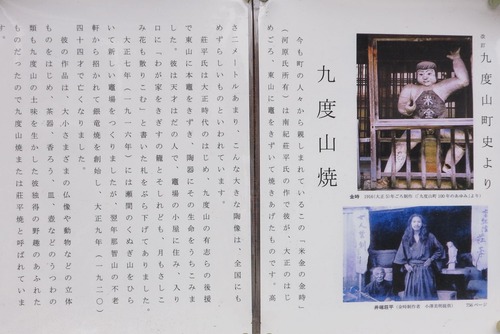 改訂 九度山町史より
九度山焼
今も町の人々から親しまれているこの「米金の金時」
（河原氏所有）は南紀荘平氏の作で彼が、大正のはじ
めごろ、東山に竈をきずいて焼きあげたものです。高
金時
井端荘平
536ページ
さ二メートルあまり、こんな大きな陶像は、全国にも
めずらしいものといわれています。
荘平氏は大正時代のはじめ、九度山の有志らの後援
で東山に本竈をきずき、陶器にその生命をうちこみま
した。彼は天才はだの人で、竈場の小屋に住み、入り
口に「わが家をきずの竈とそしれども、月もさしこ
み花も散りこむ」と書いた札をぶら下げてありました。
大正七年（一九一八年）には瀬間のくぬぎ山をひら
いて新しい竈場をつくりましたが、翌年那智山の不老
軒から招かれて銀竜焼を創始し、大正九年（一九二〇）
四十四才で亡くなりました。
彼の作品は、大小さまざまの仏像や動物などの立体
ものをはじめ、茶器、香ろう、皿、壺などのうつわの
類も九度山の土味を生かした彼独得の野趣のあふれた
ものだったので九度山焼または荘平焼と呼ばれていま
す。